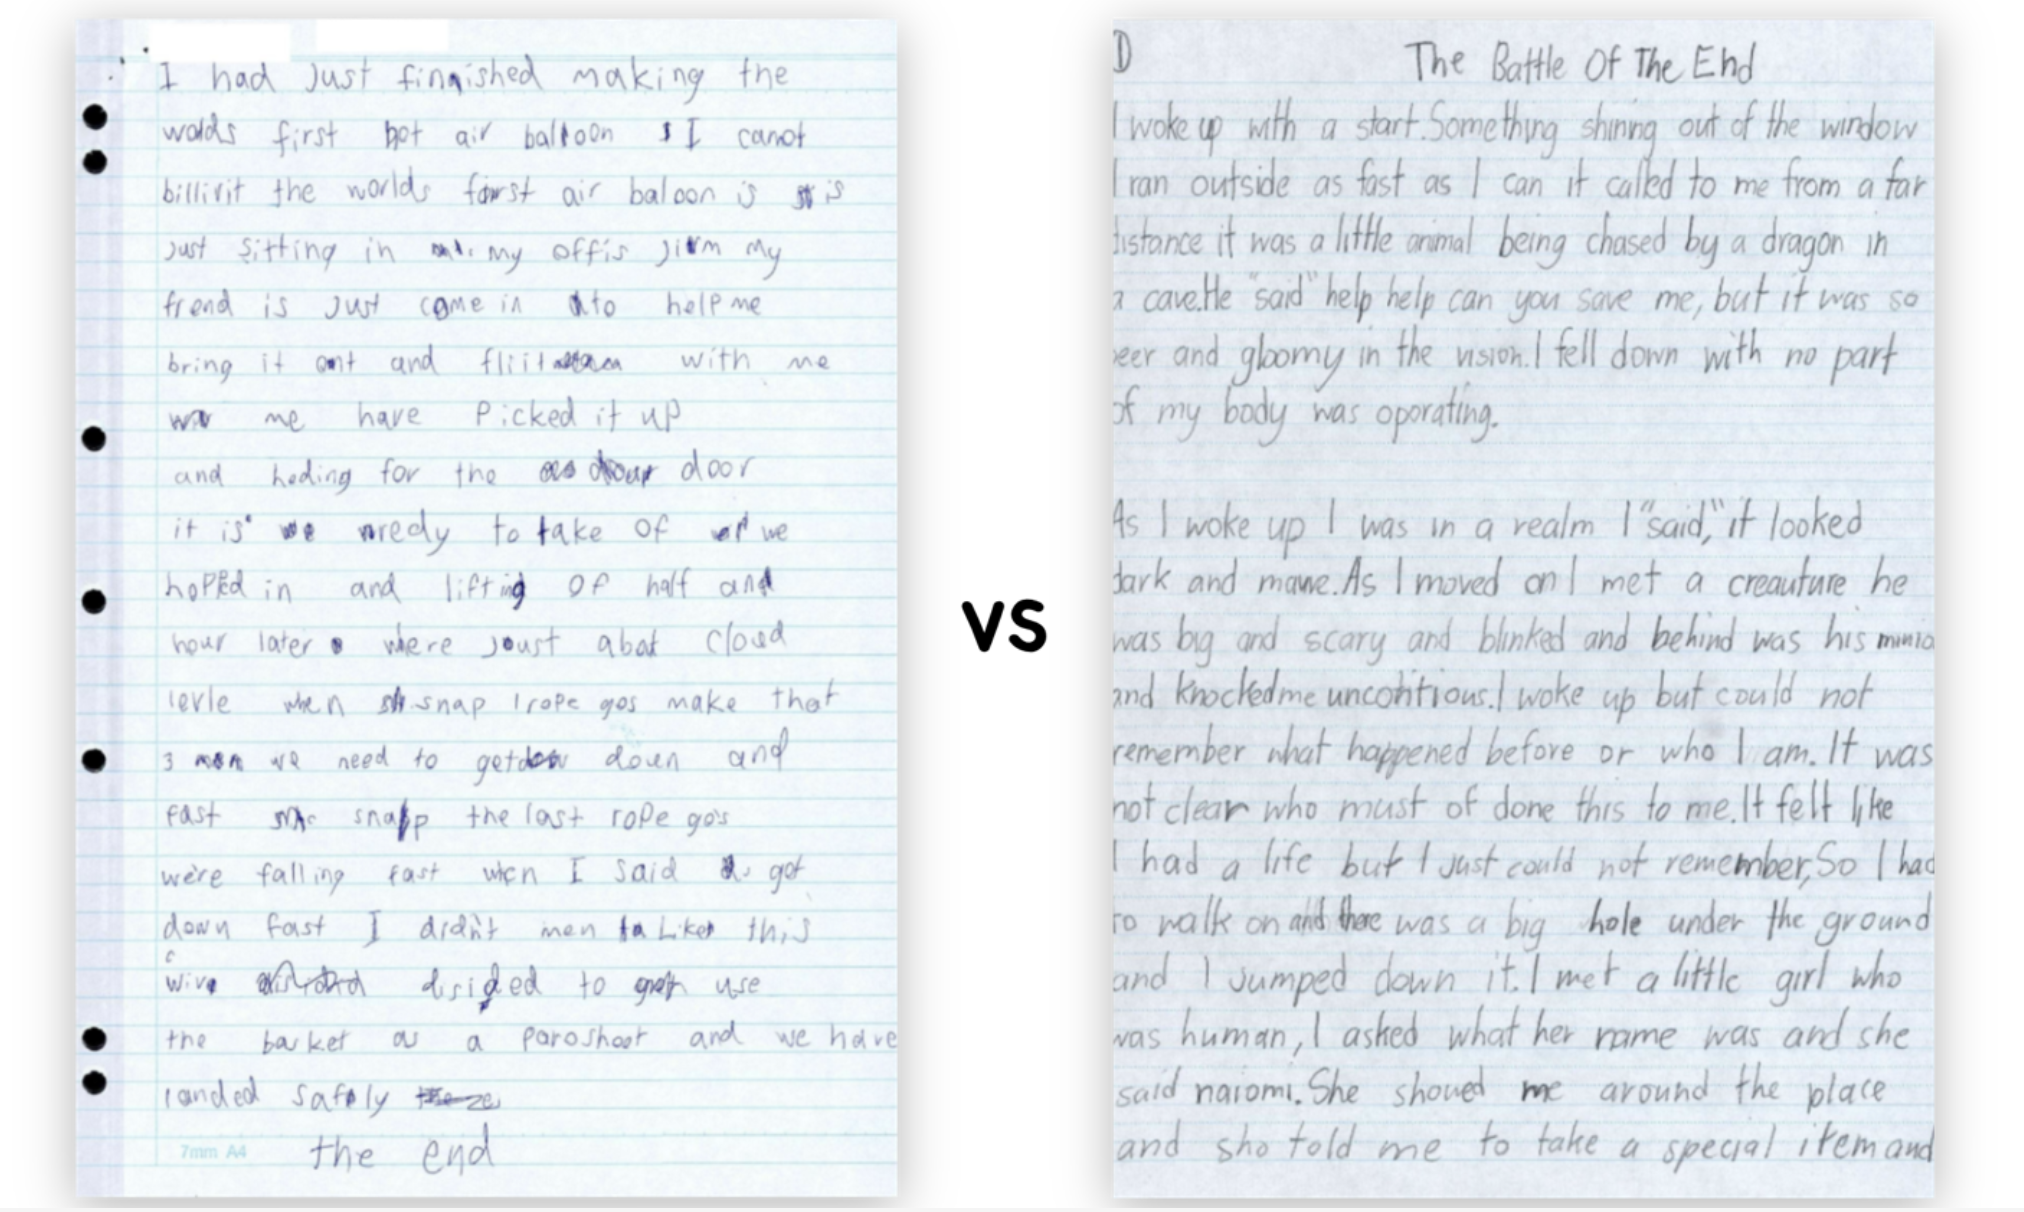 I had Just finnished making the
wolds first hot air balloon I canot
billivit the worlds first air baloon is is
Just sitting in my offis jim my
frend is Just come in to help me
bring it out and fliit with me
me have Picked it up
and heding for the door
it is redy to take of we
hopped in and lifting of half and
hour later where joust abot cloud
levle when snap 1 rope gos make that
3 we need to get down and
fast snapp the last rope go's
we're falling fast when I said get
down fast I didn't men Like this
disided to use
the basket as a paroshoot and we have
landed safely
the end
7mm A4
VS
D
The Battle Of The End
I woke up with a start.Something shining out of the window
I ran outside as fast as I can it called to me from a far
istance it was a little animal being chased by a dragon in
a cave.He "said" help help can you save me, but it was so
eer and gloomy in the vision.I fell down with no part
of my body was oporating.
As I woke up I was in a realm I "said," it looked
dark and mawe.As I moved on I met a creauture he
was big and scary and blinked and behind was his minio
and knocked me uncontious.I woke up but could not
remember what happened before or who I am. It was
not clear who must of done this to me.It felt like
I had a life but I just could not remember,So I had
to walk on and there was a big hole under the ground
and I jumped down it.I met a little girl who
was human, I asked what her name was and she
said naiomi.She showed me around the place
and she told me to take a special item and